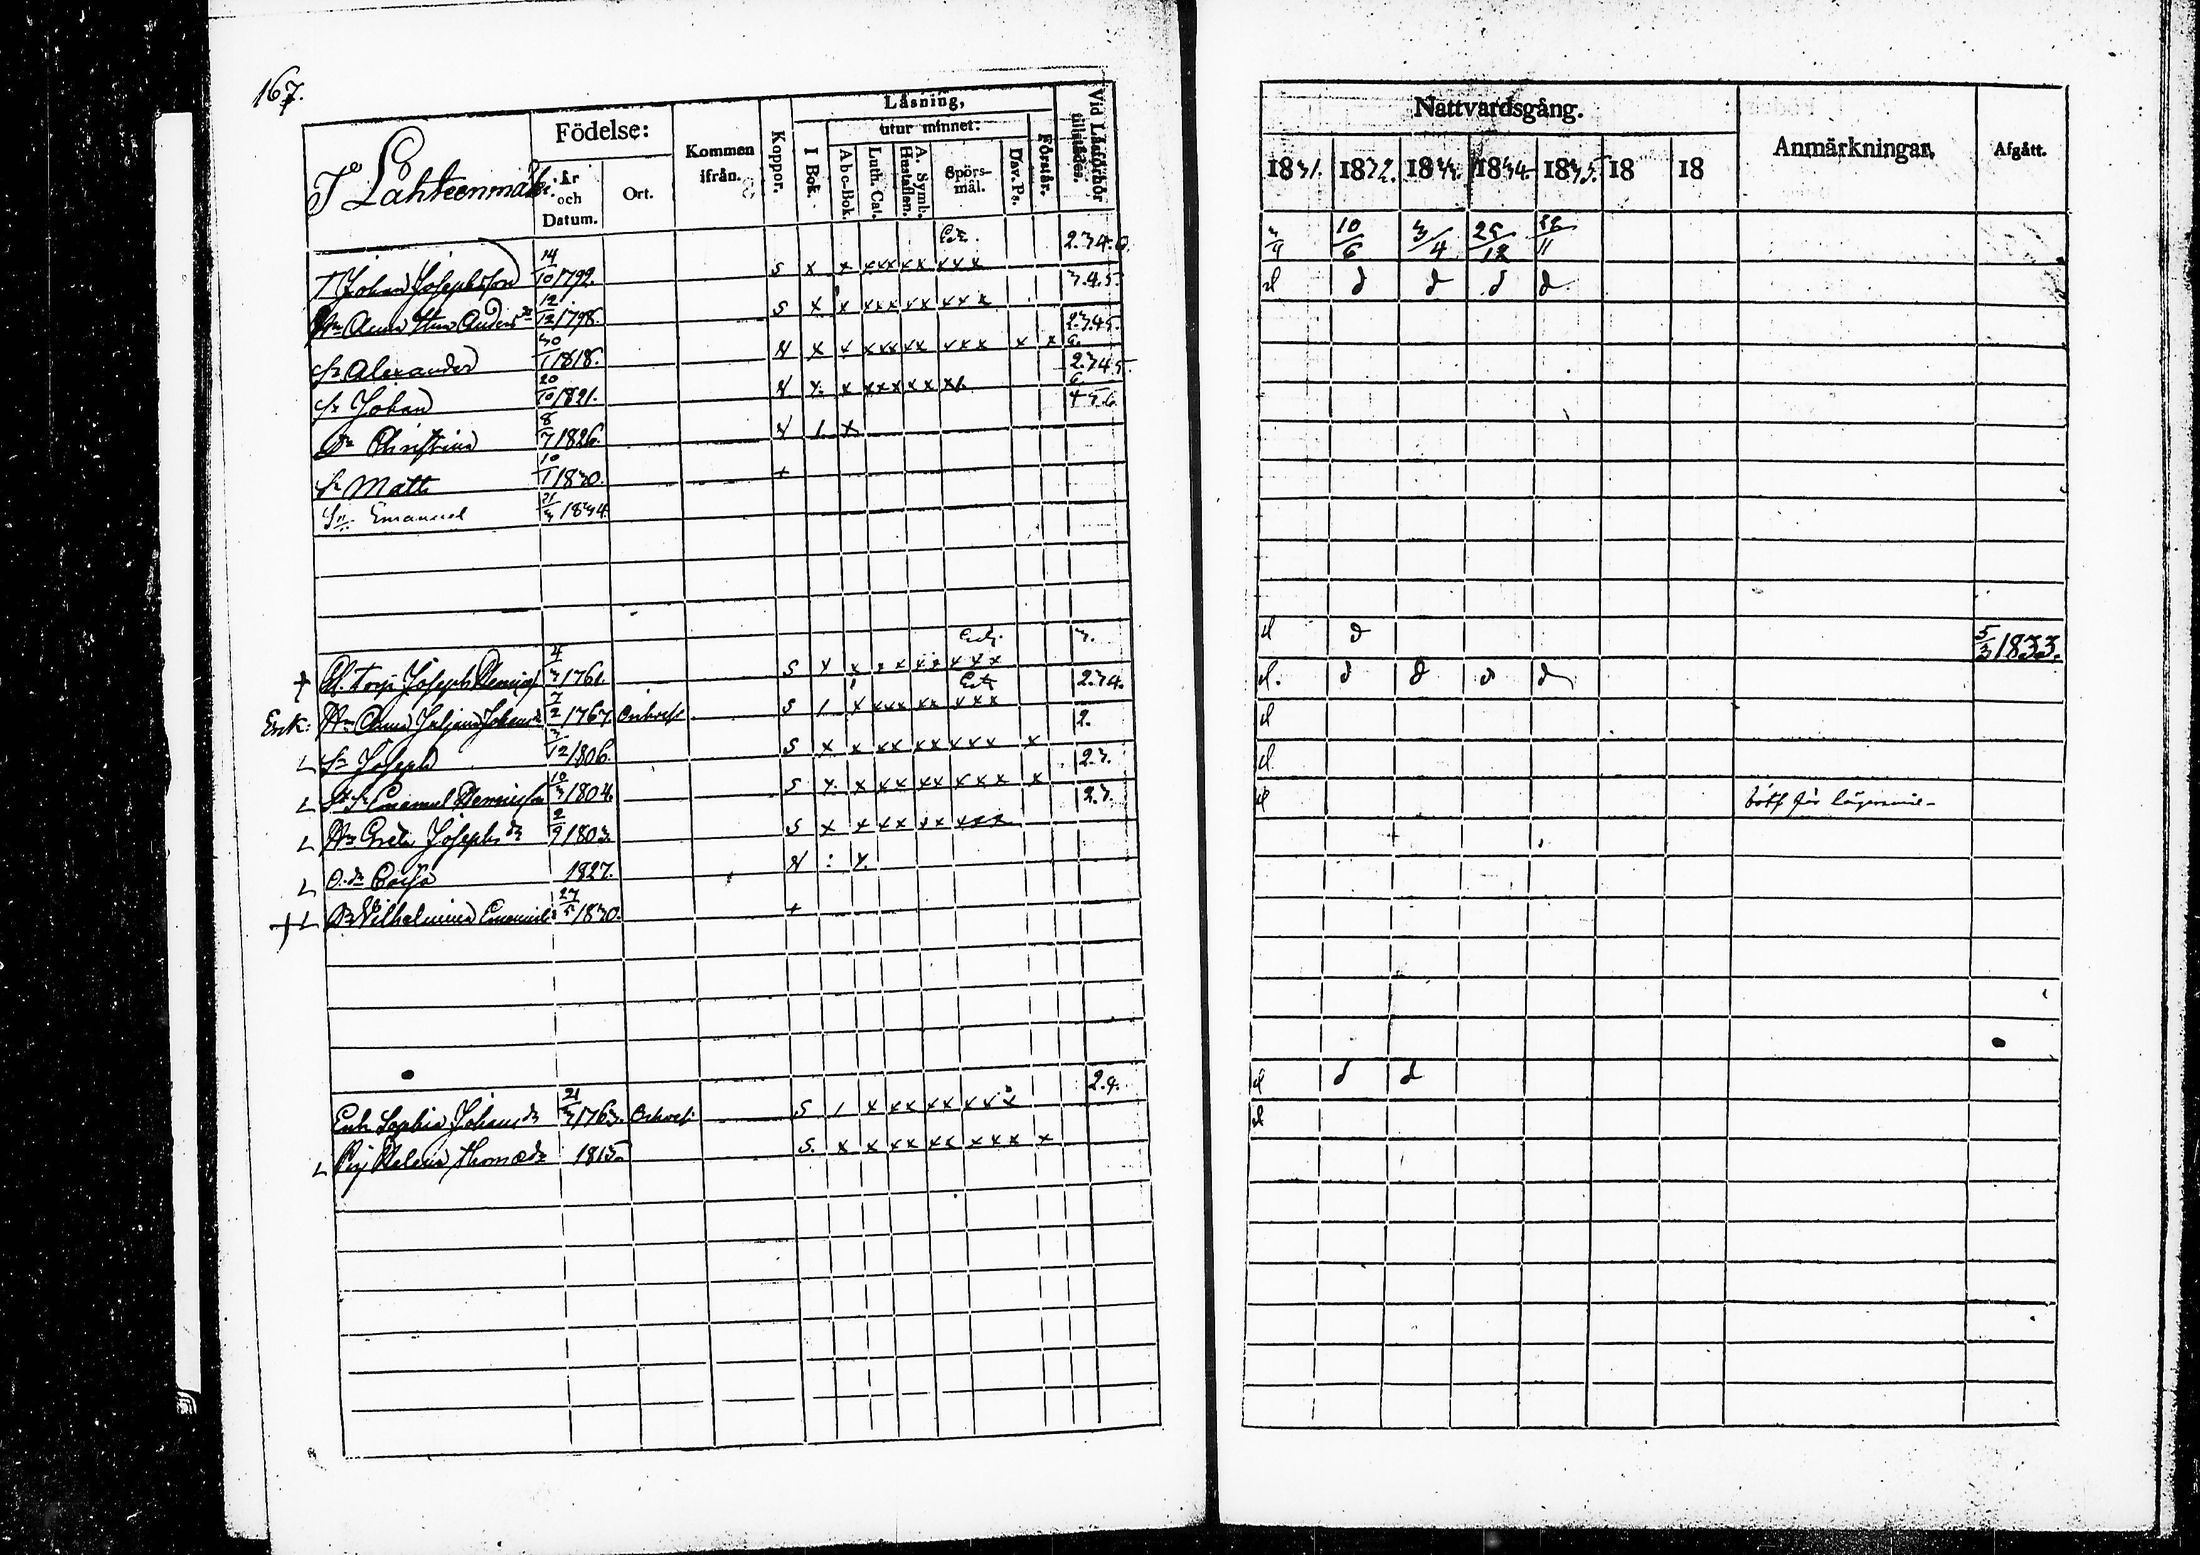 167.
T Lähteenmäki.
Födelse:
År och Datum.
Ort.
Kommen ifrån.
Koppor.
Läsning,
I Bok.
utur minnet:
Abc-Bok.
Luth. Cat.
A. Symb. Hustaflan.
Spörs-mål.
Dav. Ps.
Förstår.
Vid Läsförhör tillstädes.
Nattvardsgång.
1831. 1832. 1833. 1834. 1835. 18 18
Anmärkningar.
Afgått.
3/4 10/6 3/4 25/12
T Johan Josephsson 14/10 1792. S x x xxx xx xxx 2.3.4.6
Anna Stina Anders dr 12/12 1798. S x x xxx xx xxx 3.4.5.
Sn Alexander 30/1 1818. N x x xxx xx xxx x x 2.3.4.5. 6.
Sn Johan 20/10 1821. N x x xxx xx 2.3.4.5 6.
Dr Christina 8/7 1826. N 1 x 4.5.6.
Sn Matts 10/1 1830. +
Sn Emanuel 21/3 1834.
+ Joseph Henriss 4/3 1761. S x x x x xx xxx 3. d d 5/3 1833.
Enk: Hu Anna Juliana Johans dr 7/2 1767. S 1 x xxx xx xxx 2.3.4. d. d d d d
L Sn Joseph 3/12 1806. S x x xx xx xxx x 2. d
L Emanuel Henriсsson 10/3 1804. S x x xx xx xxx x 2.3. d
L Hu Greta Josephs dr 2/9 1803. S x x xx xx xxx 2.3. d
L Caisa 1827. N : x.
+ L Wilhelmina Emanuels 27/5 1830. +
Enk Sophia Johans dr 21/3 1763. S 1 x xx xx xxx 2.4. d d d
L Pig Helena Thomæ dr 1815. S. x x xx xx xxx x d